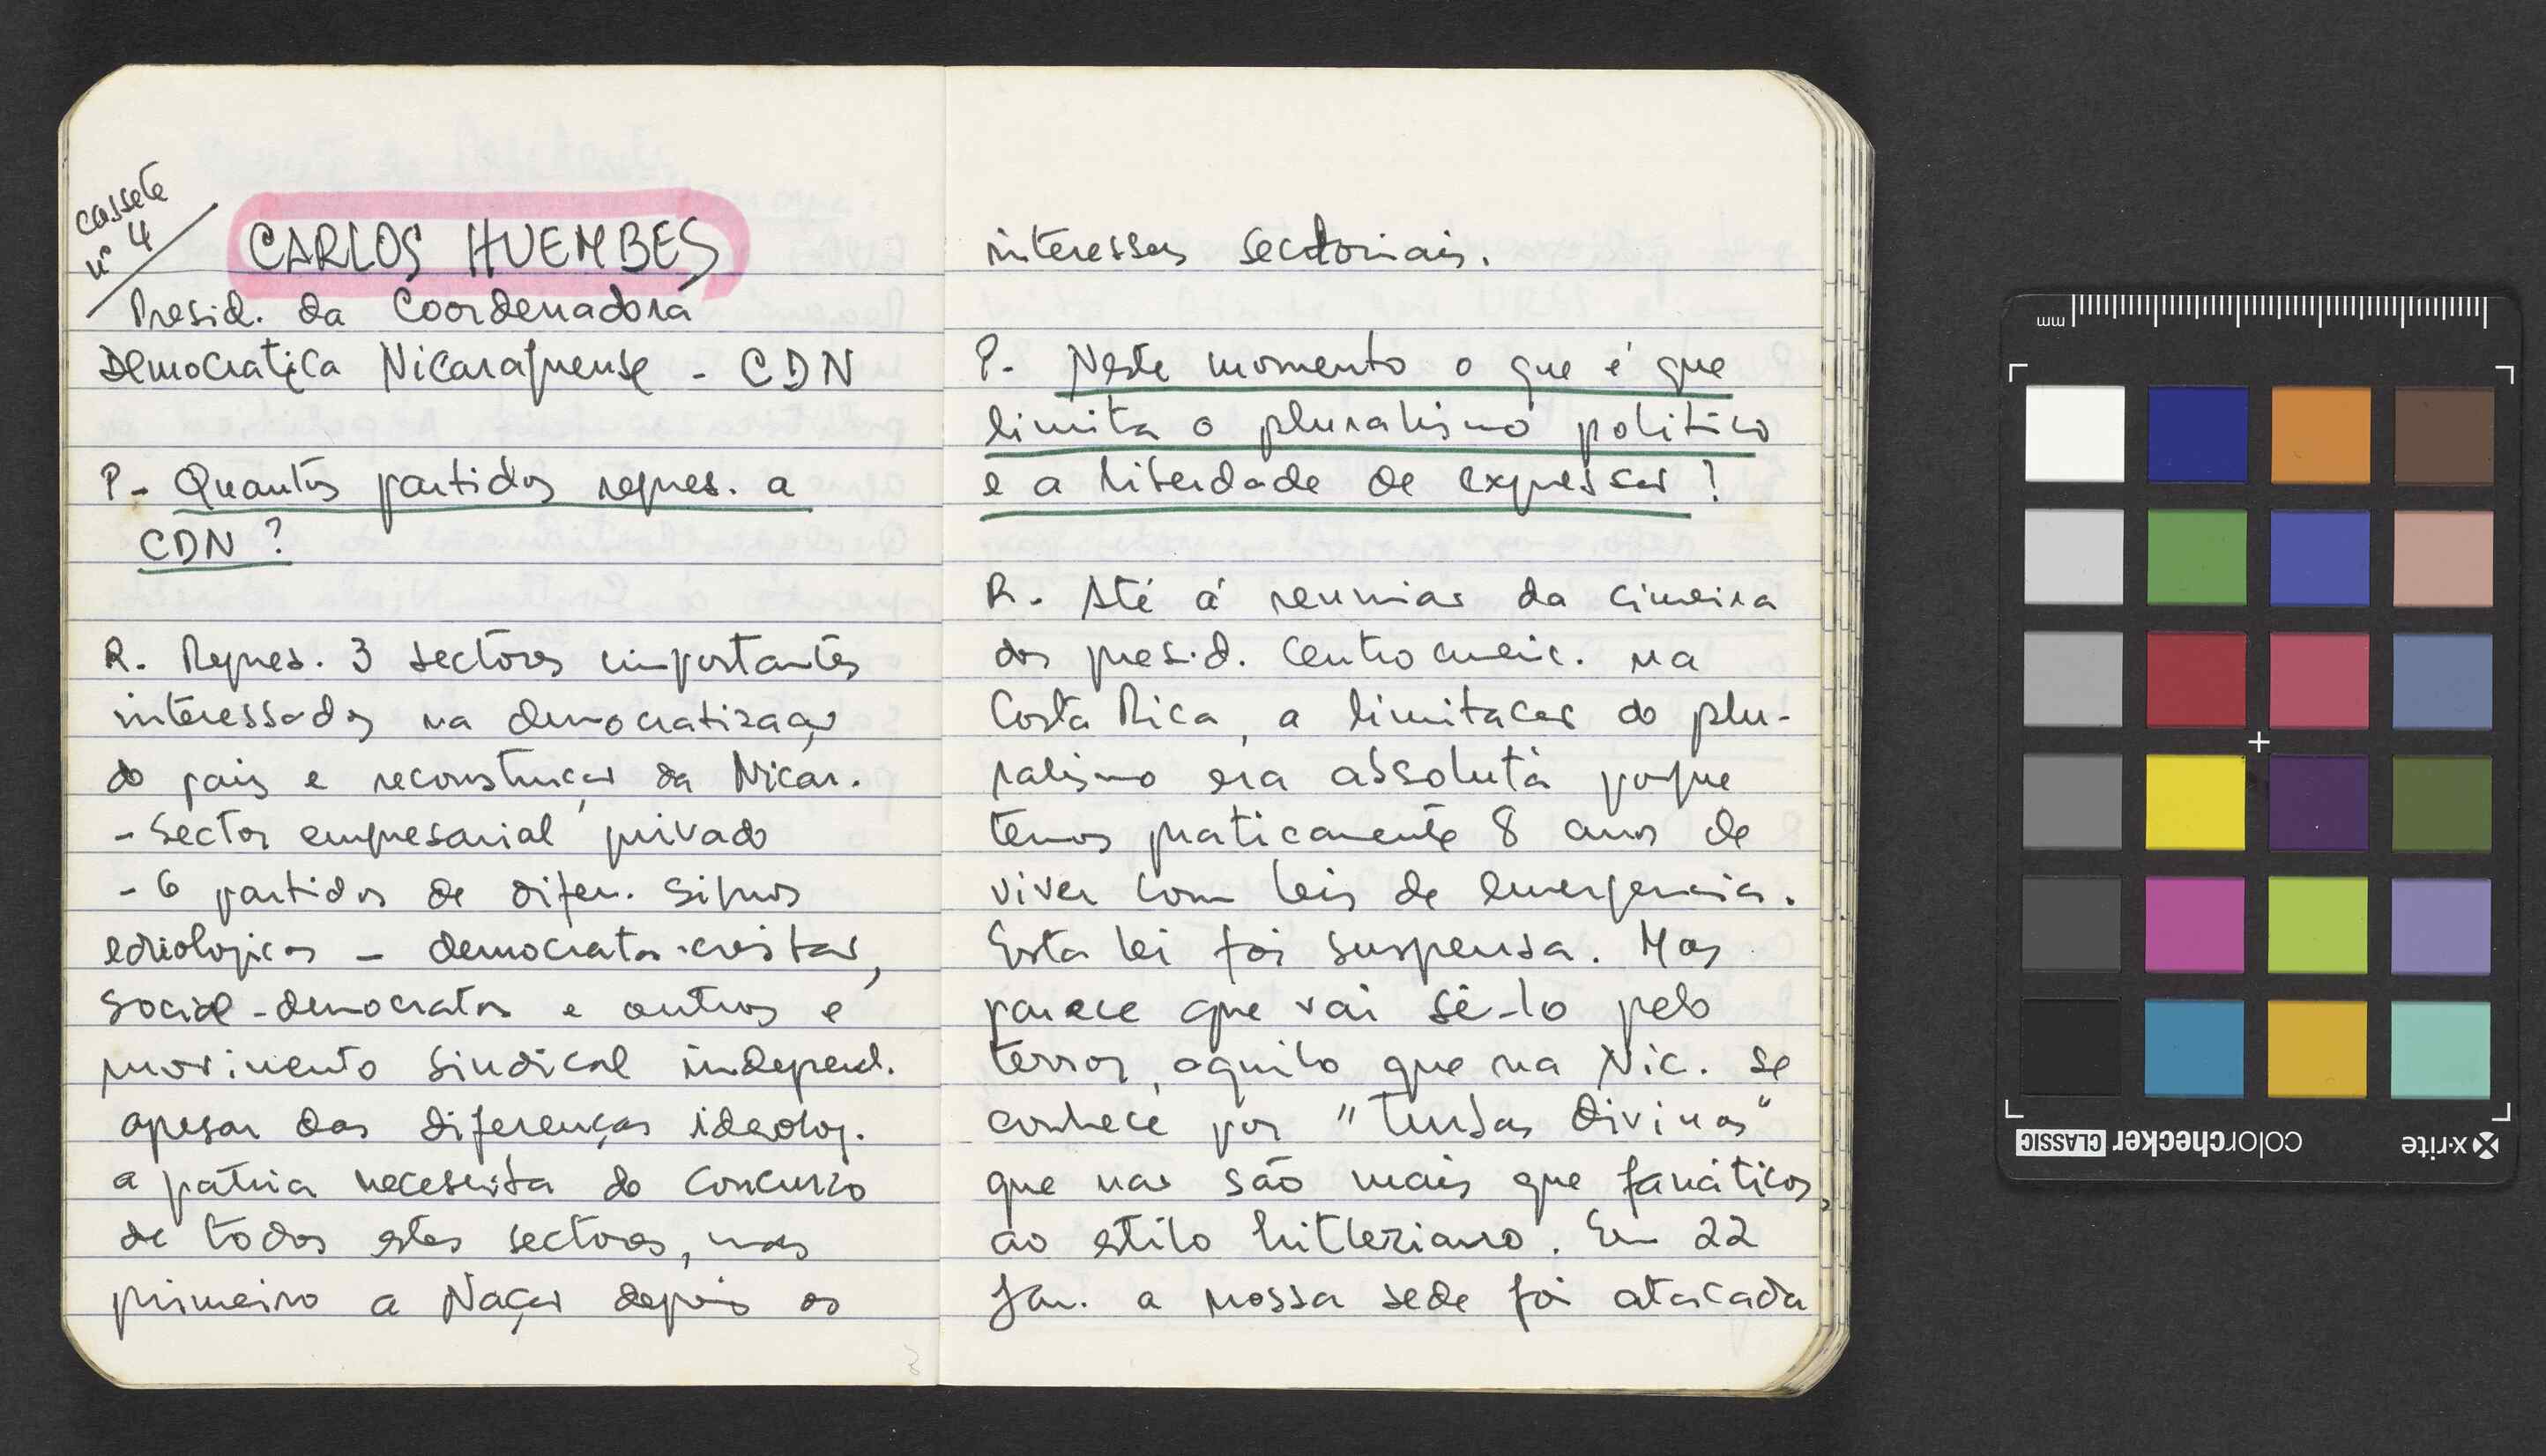 cassete
nº 4
CARLOS HUEMBES
Presid. da Coordenadora
Democratica Nicaraguense - CDN
P- Quantos partidos repres. a
CDN?
R. Repres. 3 sectores importantes
interessados na democratizaçao
do pais e reconstruçao da Nicar.
- Sector empresarial privado
- 6 partidos de difer. signos
ediologicos - democratas-cristas,
social-democratas e outros e
movimento sindical independ.
apesar das diferenças ideolog.
a patria necessita do concurso
de todos estes sectores, mas
primeiro a Naçao depois os
interesses sectoriais.
P- Neste momento o que é que
limita o pluralismo politico
e a liberdade de expressao?
R. Até á reuniao da cimeira
dos presid. centroameric. na
Costa Rica, a limitacao do plu-
ralismo era absoluta porque
temos praticamente 8 anos de
viver com leis de emergencia.
Esta lei foi suspensa. Mas
parece que vai sê-lo pelo
terror, aquilo que na Nic. se
conhece por "Turbas divinas"
que nao são mais que fanáticos,
ao estilo hitleriano. Em 22
Jan. a nossa sede foi atacada
mm
colorchecker CLASSIC
x-rite